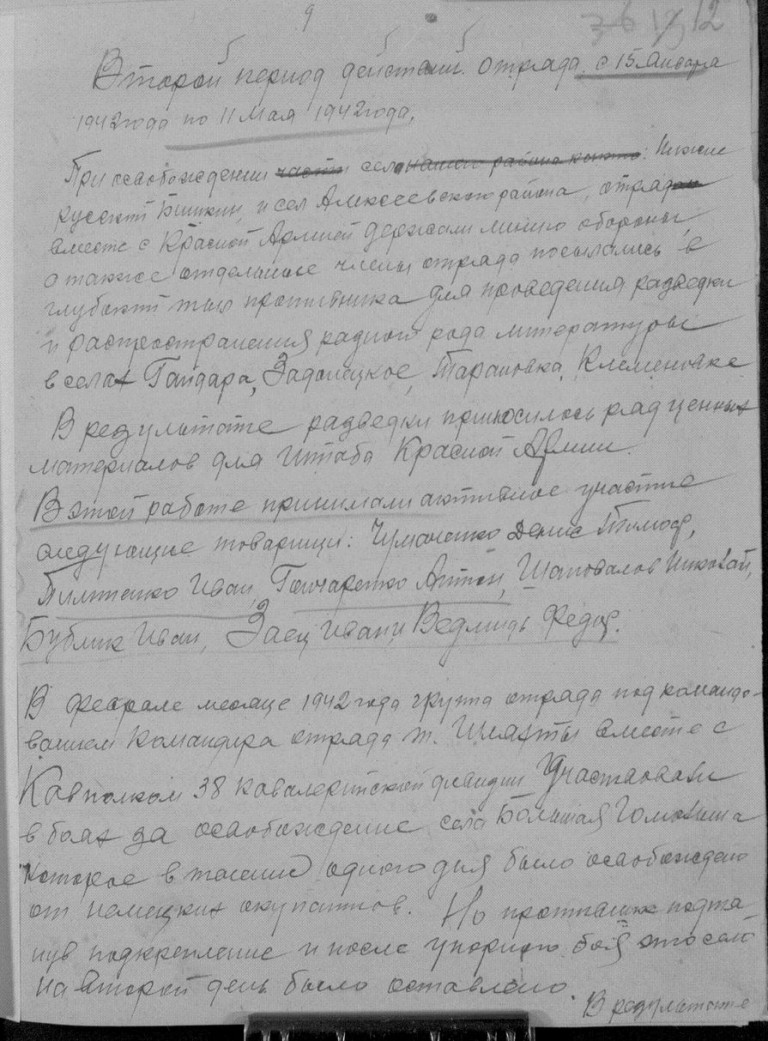 9
12
Второй период действий отряда, с 15 Января
1942 года по 11 Мая 1942 года.
При освобождении части села нашего района : Нижне
русский Бишкин, и сел Алексеевского района, отряд
вместе с Красной Армией держали линию обороны,
а также отдельные члены отряда посылались в
глубокий тыл противника для проведения разведки
и распространения разного рода литературы
в селах Гайдара, Задонецкое, Тарановка, Клеменовке
В результате разведки приносилось ряд ценных
материалов для Штаба Красной Армии.
В этой работе принимали активное участие
следующие товарищи: Чумаченко Денис Тимоф,
Пилипенко Иван, Гончаренко Антон, Шаповалов Николай,
Бублик Иван, Заец Иван, Ведмидь Федор.
В феврале месяце 1942 года группа отряда под командо-
ванием командира отряда т. Шлахты вместе с
Кавполком 38 кавалерийской дивизии Участвовали
в боях за освобождение села Большая Гомольша
которое в течение одного дня было освобождено
от немецких окупантов. Но противник подтя-
нув подкрепление и после упорного боя это село
на второй день было оставлено.
В результате